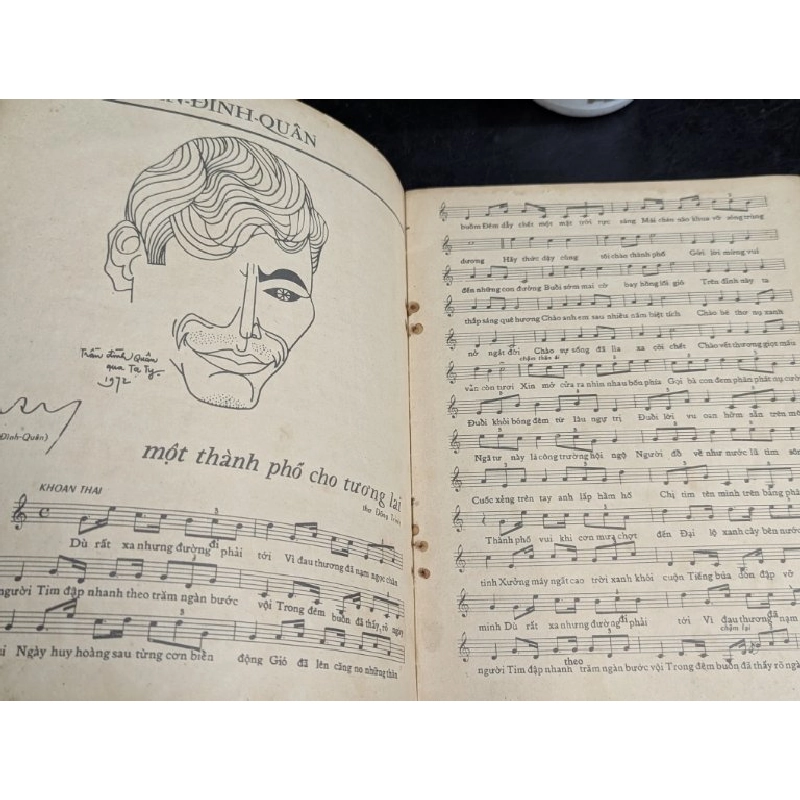 N-ĐÌNH-QUÂN
Trần Đình Quân
qua Tạ Tỵ.
1972
Đình-Quân)
một thành phố cho tương lai
thơ
KHOAN THAI
Dù rất xa nhưng đường đi phải tới Vì đau thương đã nạm ngọc chân
người Tim đập nhanh theo trăm ngàn bước vội Trong đêm buồn đã thấy rõ ngày
Ngày huy hoàng sau từng cơn biến động Gió đã lên căng no những thân
buồm Đêm dẫy chết một mặt trời rực sáng Mái chèo nào khua vỡ sóng trùng
dương Hãy thức dậy cùng tôi chào thành phố Gửi lời mừng vui
đến những con đường Buổi sớm mai cờ bay hồng lối gió Trên đỉnh này ta
thắp sáng quê hương Chào anh em sau nhiều năm biệt tích Chào bé thơ nụ xanh
nở ngát đời Chào sự sống đã lìa xa cõi chết Chào vết thương giọt máu
chậm thân ái
vẫn còn tươi Xin mở cửa ra nhìn nhau bốn phía Gọi bà con đem phân phát nụ cười
Đuổi khỏi bóng đêm từ lâu ngự trị Đuổi lời vu oan hờm sẵn trên mô
Ngã tư này là công trường hội ngộ Người đổ về như nước lũ tìm sôn
Cuốc xẻng trên tay anh lấp hầm hố Chị tìm tên mình trên bảng phả
Thành phố vui khi cơn mưa chợt đến Đại lộ xanh cây bên nước
tình Xưởng máy ngất cao trời xanh khói cuộn Tiếng búa dồn đập vỡ
minh Dù rất xa nhưng đường đi phải tới Vì đau thương đã nạm
chậm lại
người Tim đập nhanh theo trăm ngàn bước vội Trong đêm buồn đã thấy rõ ngà